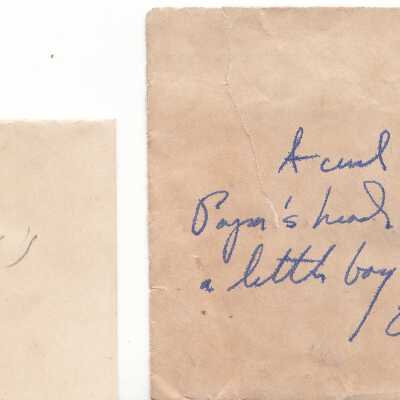 A curl
Papa's head
a little boy